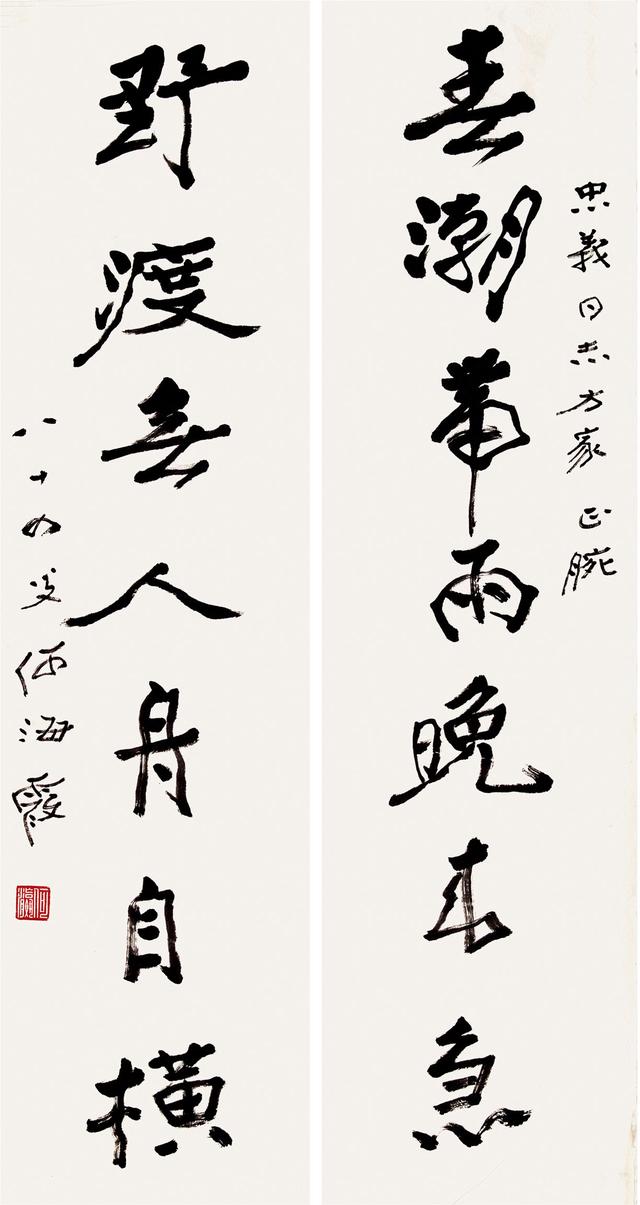 忠義同志方家正腕
春潮帶雨晚來急
野渡無人舟自橫
八十四叟何海霞
何瀛